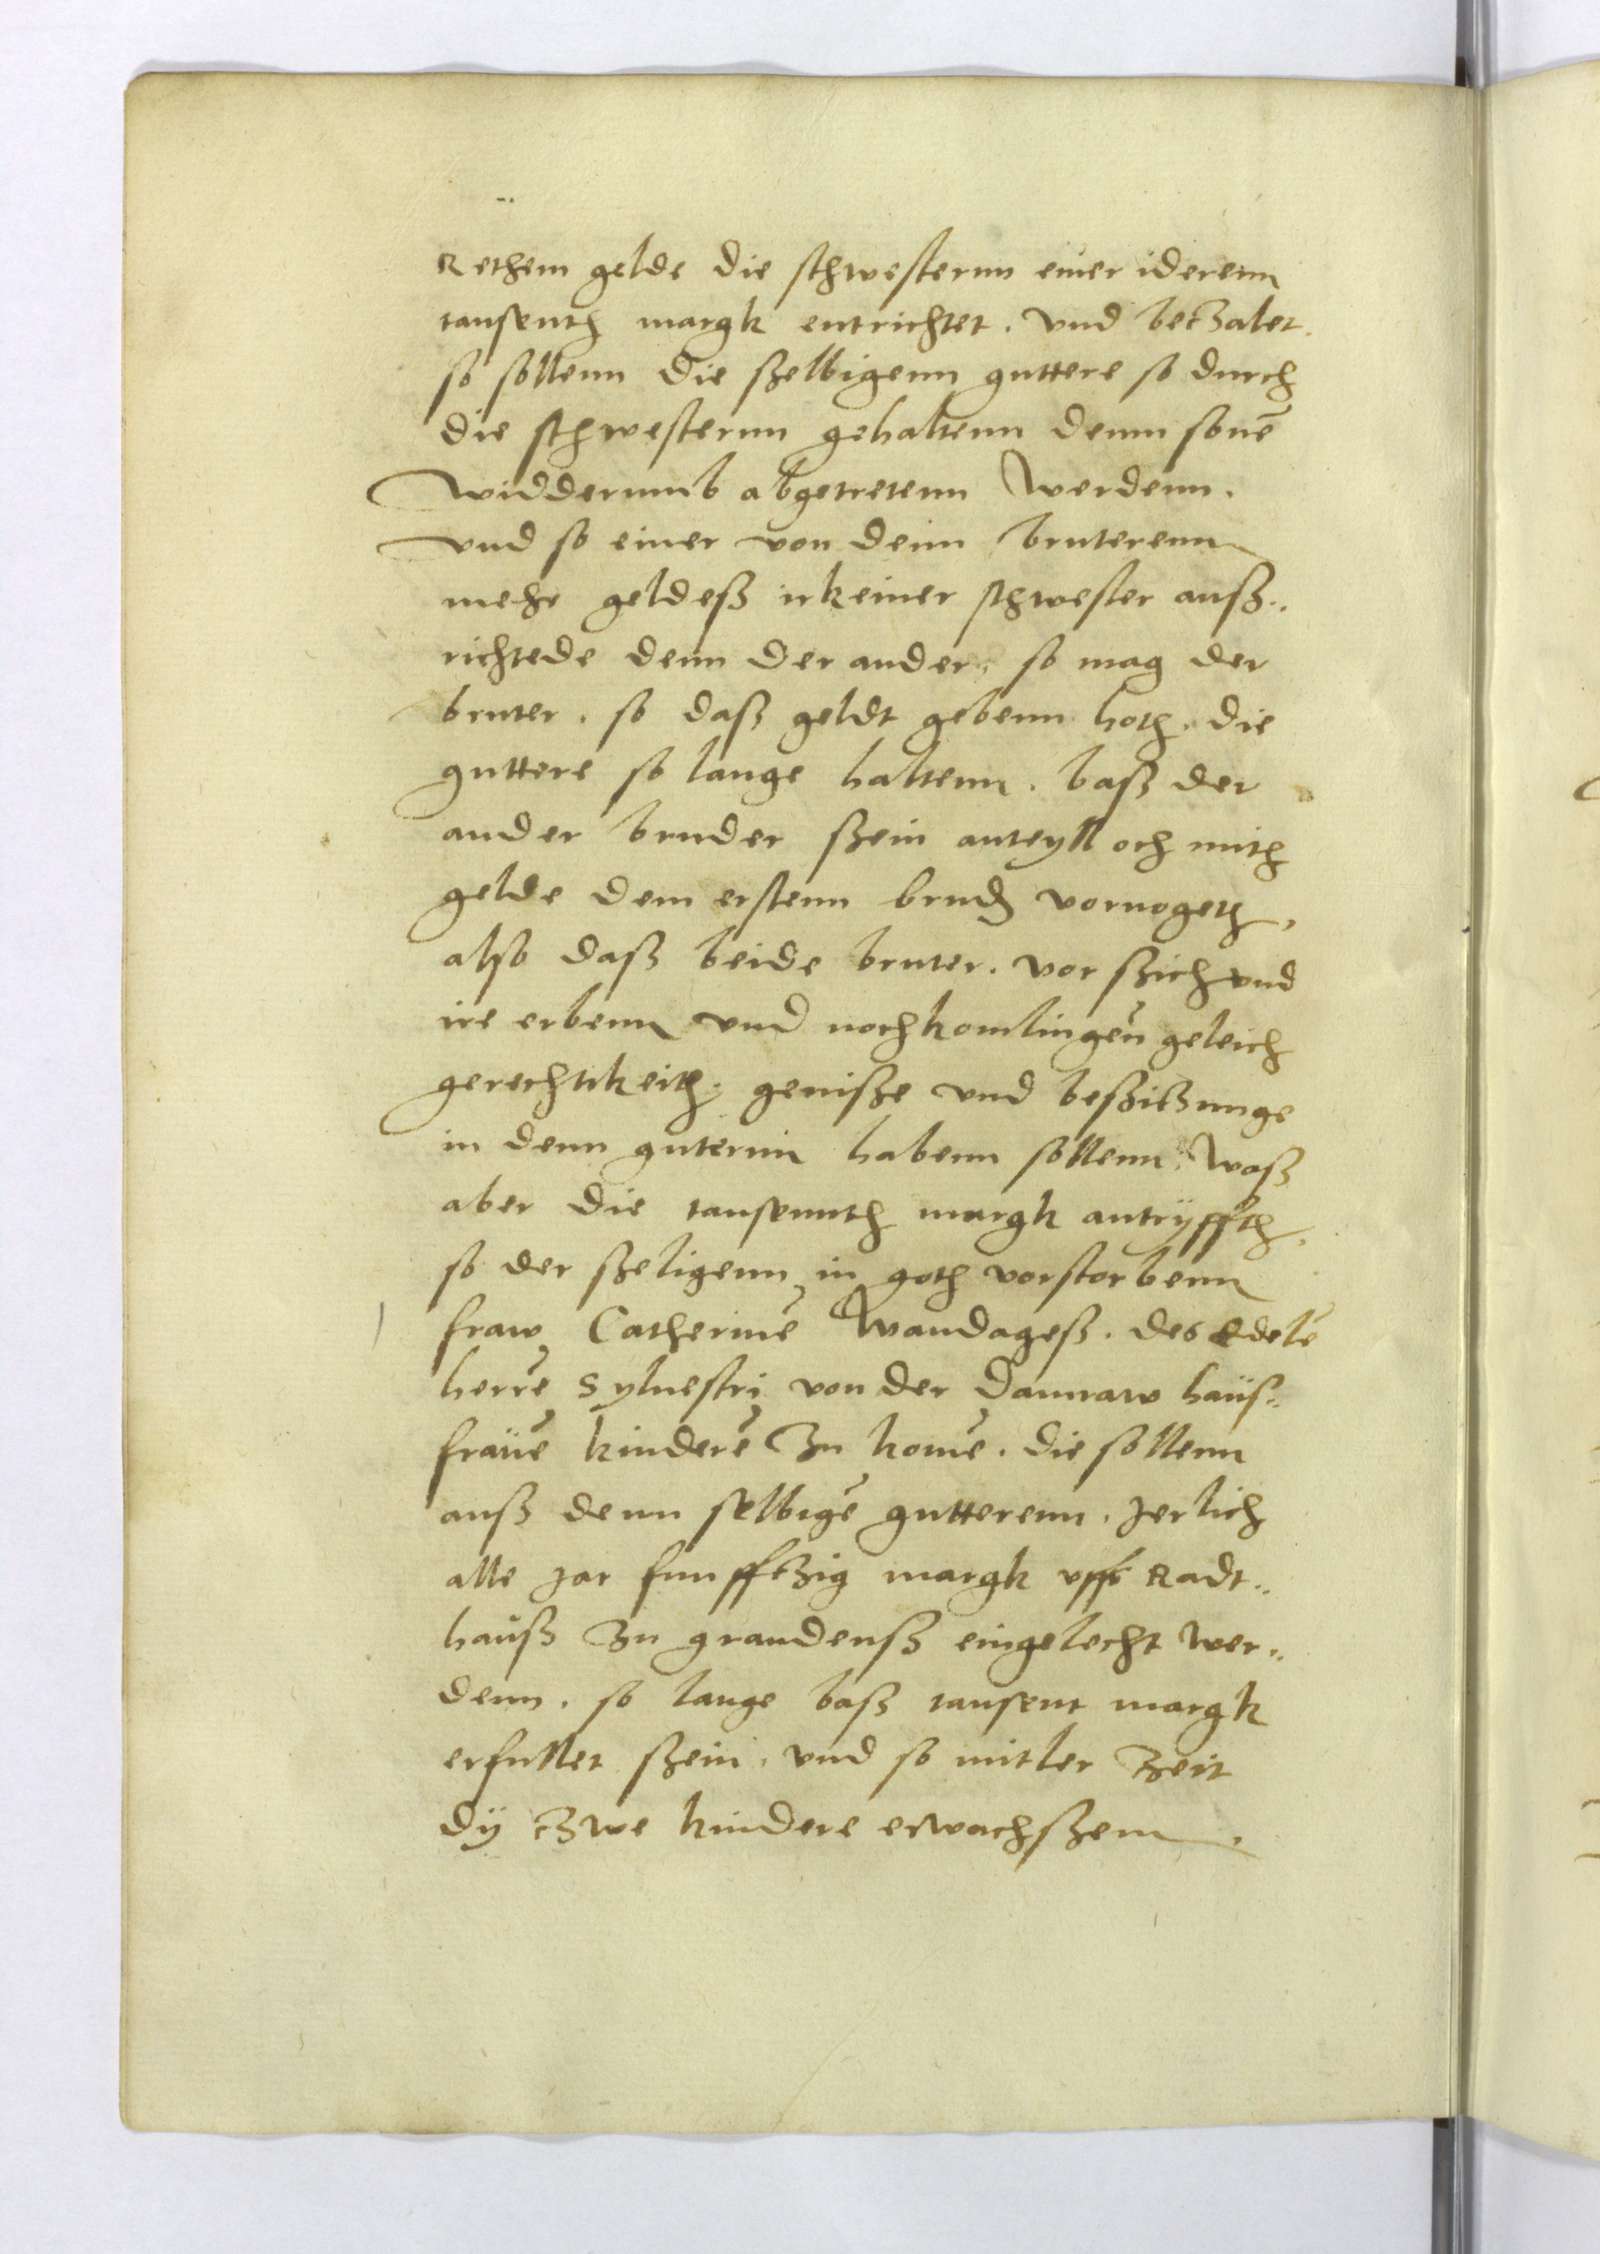 Rethem gelde die schwesternn einer iderenn
tausenth margk entrichtet. vnd betzalet.
so sollenn die sselbigenn guttere so durch
die schwesternn gehaltenn denn sonē
widderumb abgetretenn werdenn.
vnd so einer von denn bruterenn
mehr geldeß irkeiner schwester auß..
richtede denn der ander, so mag der
bruter. so daß geldt gebenn hoth. die
guttere so lange haltenn. baß der
ander bruder ßein anteyll och mith
gelde dem erstenn brud vornogeth,
also daß beide bruter. vor ßich vnd
ire erbenn vnd nochkomlingē geleich
gerechtikeith. genisse vnd beßitzunge
in denn guternn habenn sollenn. waß
aber die tausennth margk antryffth.
so der ßeligenn in goth vorstorbenn
fraw Catherinē Wandageß. des Edelē
herrē Syluestri von der Damraw haus..
frauē kinderē zu komē. die sollenn
auß denn selbigē gutterenn. jerlich
alle jar funfftzig margk vffs Radt..
hauß zu graudenß eingelecht wer..
denn. so lange baß tausent margk
erfullet ßein. vnd so mitler Zeit
dy tzwe kindere erwachßenn.